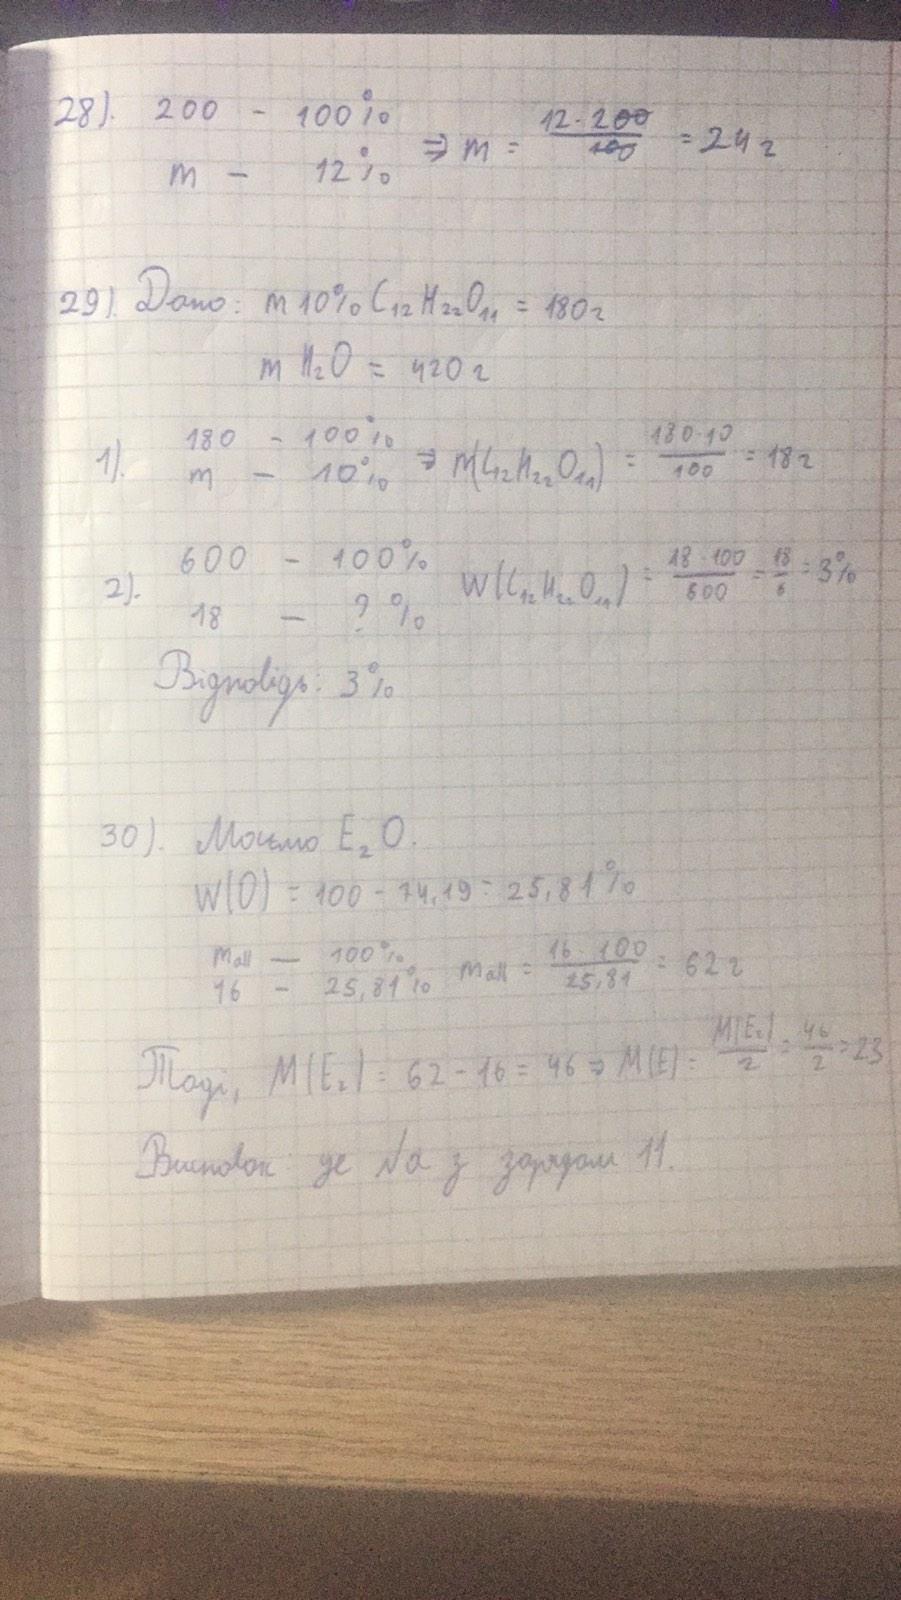 28). 200 - 100%
m - 12% ⇒ m = 12·200/100 = 24 г
29). Дано: m 10% C₁₂H₂₂O₁₁ = 180 г
m H₂O = 420 г
1). 180 - 100%
m - 10% ⇒ m(C₁₂H₂₂O₁₁) = 180·10/100 = 18 г
2). 600 - 100%
18 - ? % W(C₁₂H₂₂O₁₁) = 18·100/600 = 18/6 = 3%
Відповідь: 3%
30). Маємо E₂O.
W(O) = 100 - 74,19 = 25,81%
mall — 100%
16 - 25,81% mall = 16·100/25,81 = 62 г
Тоді, M(E₂) = 62 - 16 = 46 ⇒ M(E) = M(E₂)/2 = 46/2 = 23
Висновок: це Na з зарядом 11.